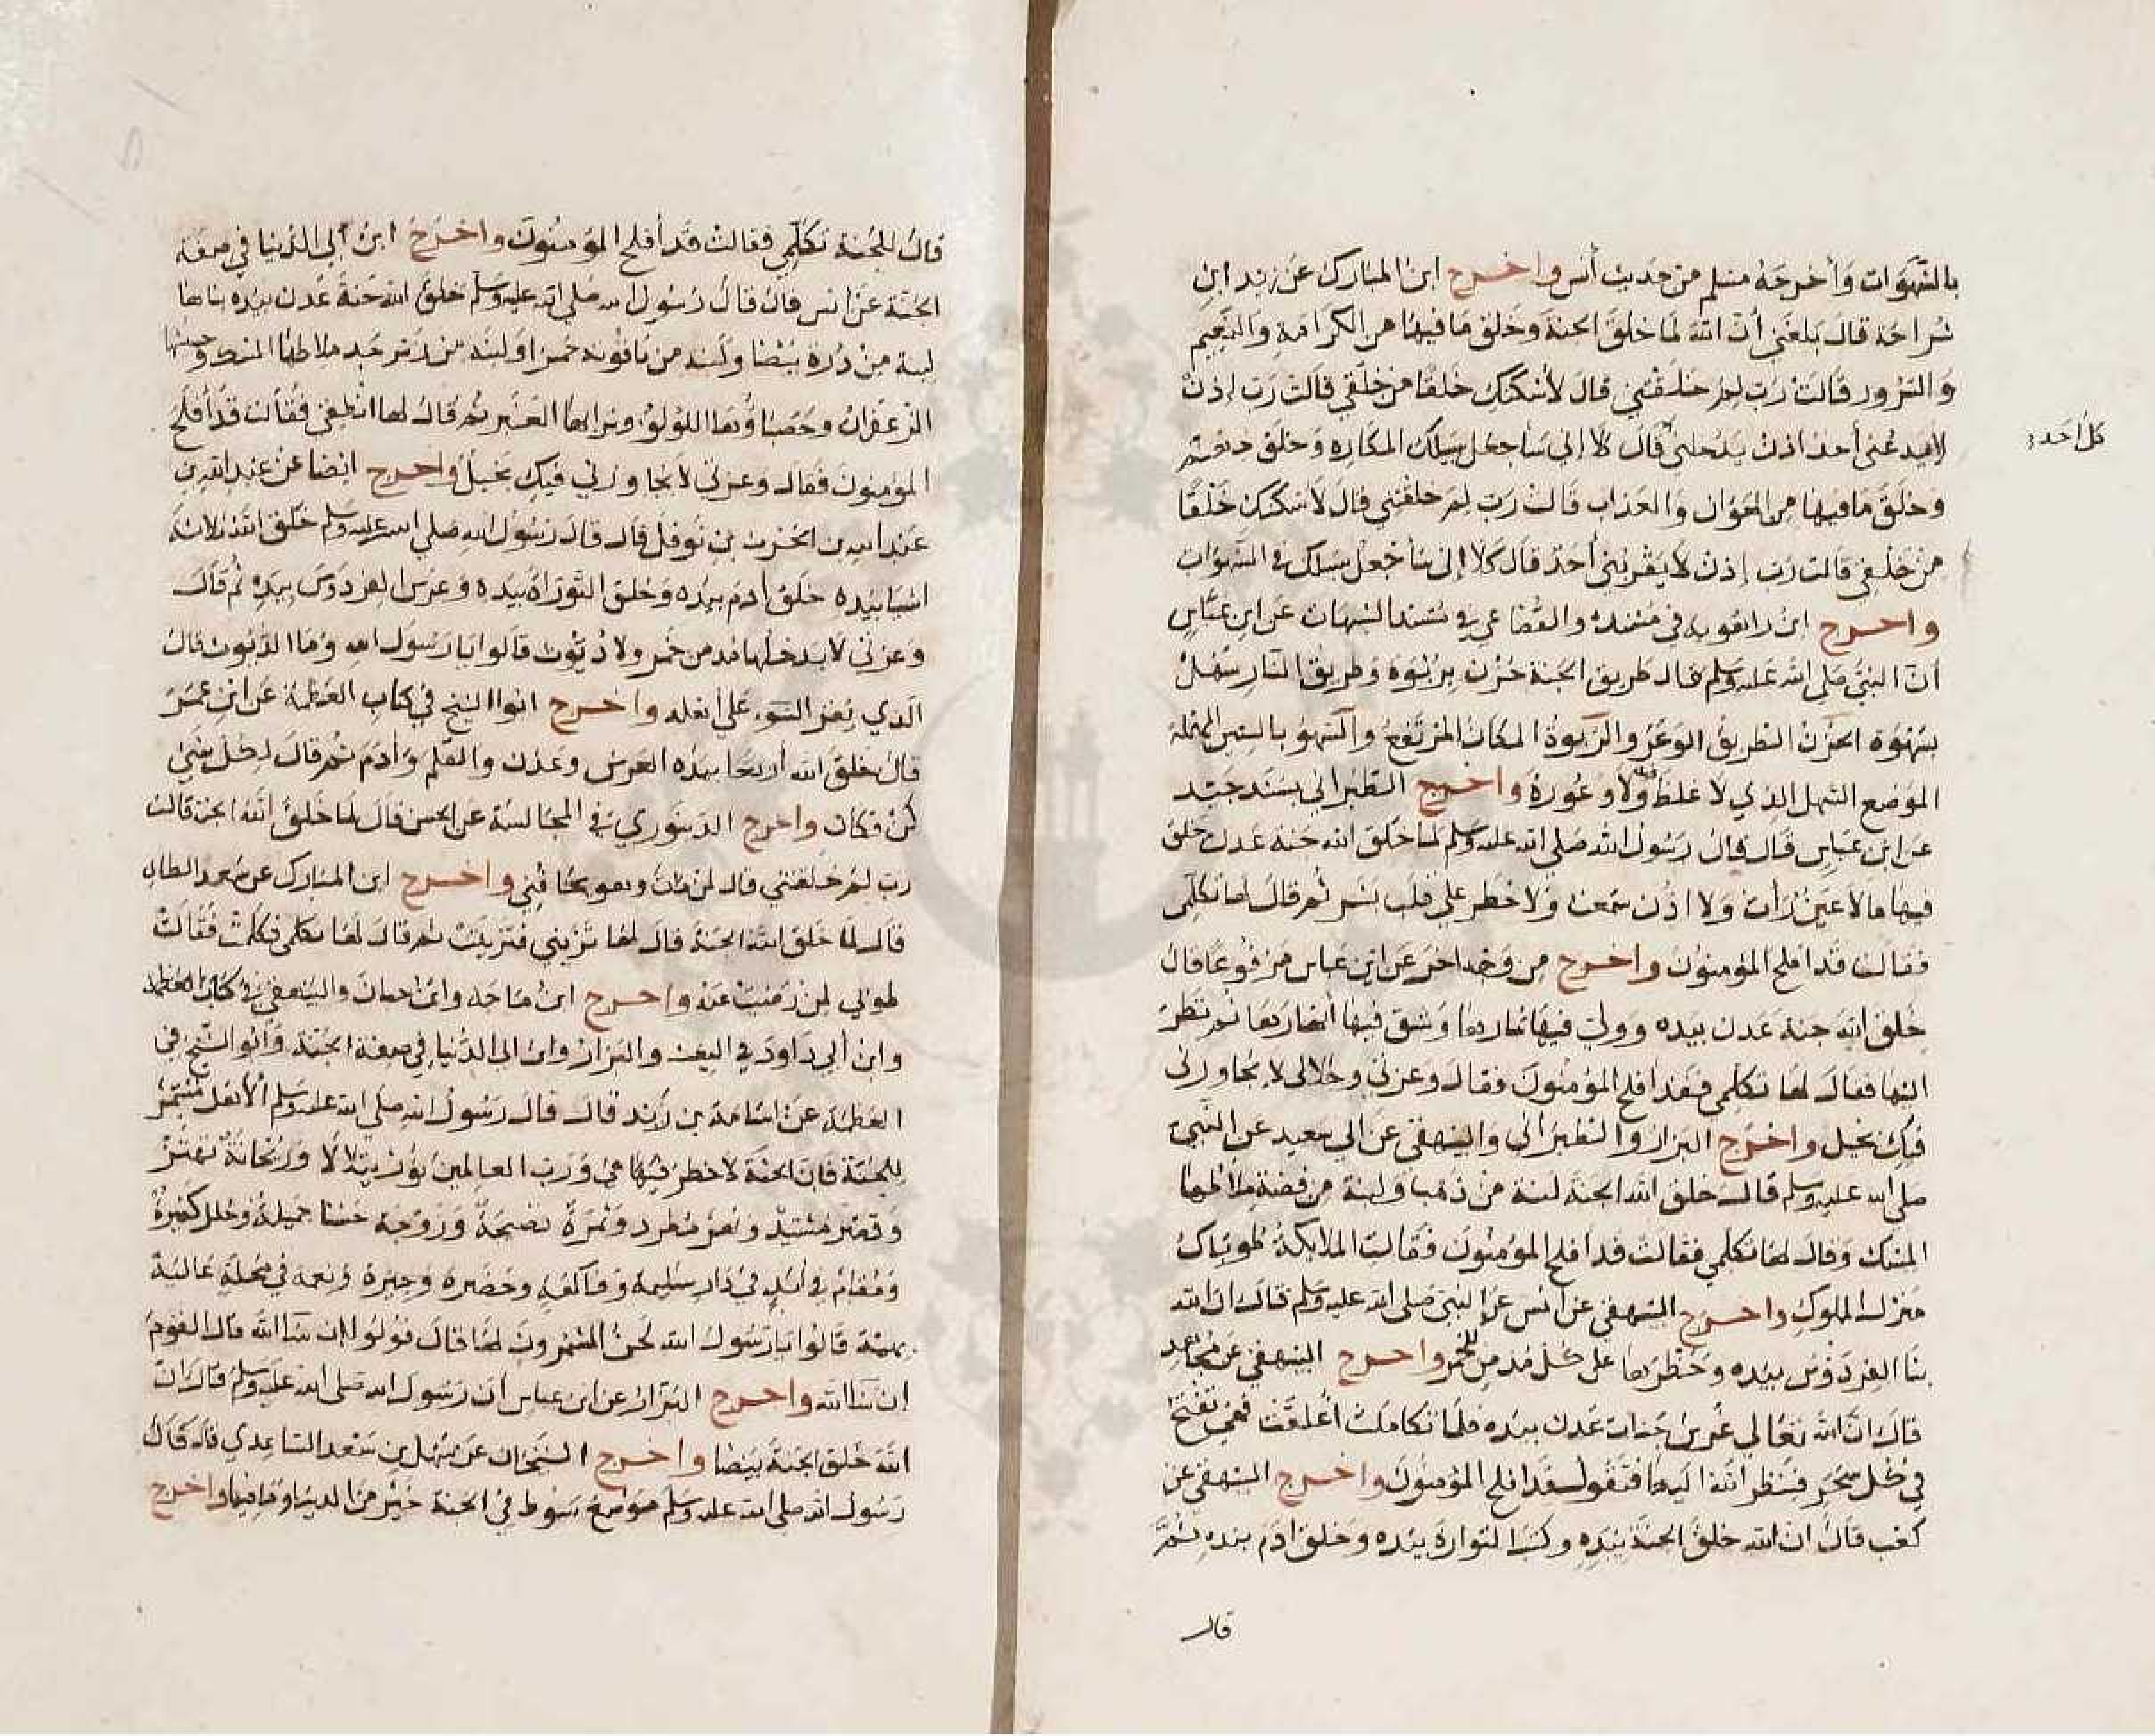 بالشهوات وأخرجه مسلم من حديث أنس واخرج ابن المبارك عن زيد ابن
شراحة قال بلغني أن الله لما خلق الجنة وخلق ما فيها من الكرامة والنعيم
والسرور قالت رب لم خلقتني قال لأسكنك خلقا من خلقي قالت رب إذن
لا يدعني أحد اذن يدخلني قال كلا إني سأجعل سبيلك المكاره وخلق جهنم
كل احد
وخلق ما فيها من الهوان والعذاب قالت رب لم خلقتني قال لأسكنك خلقا
من خلقي قالت رب إذن لا يقربني أحد قال كلا إني سأجعل سبيلك في الشهوات
واخرج ابن راهويه في مسنده والقضاعي في مسند الشهاب عن ابن عباس
أن النبي صلى الله عليه وسلم قال طريق الجنة حزن بربوة وطريق النار سهل
بسهوة الحزن الطريق الوعر والربوة المكان المرتفع والسهو بالسين المهملة
الموضع السهل الذي لا غلظ فيه ولا وعورة واخرج الطبراني بسند جيد
عن ابن عباس قال قال رسول الله صلى الله عليه وسلم لما خلق الله جنة عدن خلق
فيها ما لا عين رأت ولا اذن سمعت ولا خطر على قلب بشر ثم قال لها تكلمي
فقالت قد افلح المؤمنون واخرج من وجه اخر عن ابن عباس مرفوعا قال
خلق الله جنة عدن بيده وولى فيها ثمارها وشق فيها أنهارها ثم نظر
اليها فقال لها تكلمي فقد افلح المؤمنون فقال وعزتي وجلالي لا يجاورني
فيك بخيل واخرج البزار والطبراني والبيهقي عن أبي سعيد عن النبي
صلى الله عليه وسلم قال خلق الله الجنة لبنة من ذهب ولبنة من فضة ملاطها
المسك وقال لها تكلمي فقالت قد افلح المؤمنون فقالت الملايكة طوباك
منزل الملوك واخرج البيهقي عن أنس عن النبي صلى الله عليه وسلم قال ان الله
بنا الفردوس بيده وحظرها على كل مدمن للخمر واخرج البيهقي عن مجاهد
قال ان الله تعالى غرس جنات عدن بيده فلما تكاملت أغلقت فهي تفتح
في كل سحر فينظر الله اليها فتقول قد افلح المؤمنون واخرج البيهقي عن
كعب قال ان الله خلق الجنة بيده وكتب التوراة بيده وخلق ادم بيده ثم
قال
قال للجنة تكلمي فقالت قد أفلح المؤمنون واخرج ابن أبي الدنيا في صفة
الجنة عن انس قال قال رسول الله صلى الله عليه وسلم خلق الله جنة عدن بيده بناها
لبنة من درة بيضا ولبنة من ياقوتة حمرا ولبنة من زبرجد ملاطها المسك وحشيشها
الزعفران وحصباؤها اللؤلؤ وترابها العنبر ثم قال لها انطقي فقالت قد أفلح
المؤمنون فقال وعزتي لا يجاورني فيك بخيل واخرج ايضا عن عبد الله بن
عبد الله بن الحرث بن نوفل قال قال رسول الله صلى الله عليه وسلم خلق الله ثلاثة
اشيا بيده خلق أدم بيده وخلق التوراة بيده وغرس الفردوس بيده ثم قال
وعزتي لا يدخلها مدمن خمر ولا ديوث قالوا يا رسول الله وما الديوث قال
الذي يقر السوء على أهله واخرج ابوا الشيخ في كتاب العظمة عن ابن عمر
قال خلق الله أربعا بيده العرش وعدن والقلم وأدم ثم قال لكل شيء
كن فكان واخرج الدينوري في المجالسة عن الحسن قال لما خلق الله الجنة قالت
رب لم خلقتني قال لمن مات وهو يخافني واخرج ابن المبارك عن سعد الطاي
قال لما خلق الله الجنة قال لها تزيني فتزينت ثم قال لها تكلمي فتكلمت فقالت
طوبى لمن رضيت عنه واخرج ابن ماجه وابن حبان والبيهقي في كتاب العظمة
وابن أبي داود في البعث والبزار وابن ابي الدنيا في صفة الجنة وأبو الشيخ في
العظمة عن اسامة بن زيد قال قال رسول الله صلى الله عليه وسلم ألا هل مشمر
للجنة فان الجنة لا خطر فيها هي ورب العالمين نور يتلالا وريحانة تهتز
وقصر مشيد ونهر مطرد وثمرة نضيجة وزوجة حسنا جميلة وحلل كثيرة
ومقام في ابد في دار سليمة وفاكهة وخضرة وحبرة ونعمة في محلة عالية
بهية قالوا يا رسول الله نحن المشمرون لها قال قولوا إن شا الله قال القوم
ان شا الله واخرج البزار عن ابن عباس أن رسول الله صلى الله عليه وسلم قال ان
الله خلق الجنة بيضا واخرج الشيخان عن سهل بن سعد الساعدي قال قال
رسول الله صلى الله عليه وسلم موضع سوط في الجنة خير من الدنيا وما فيها واخرج